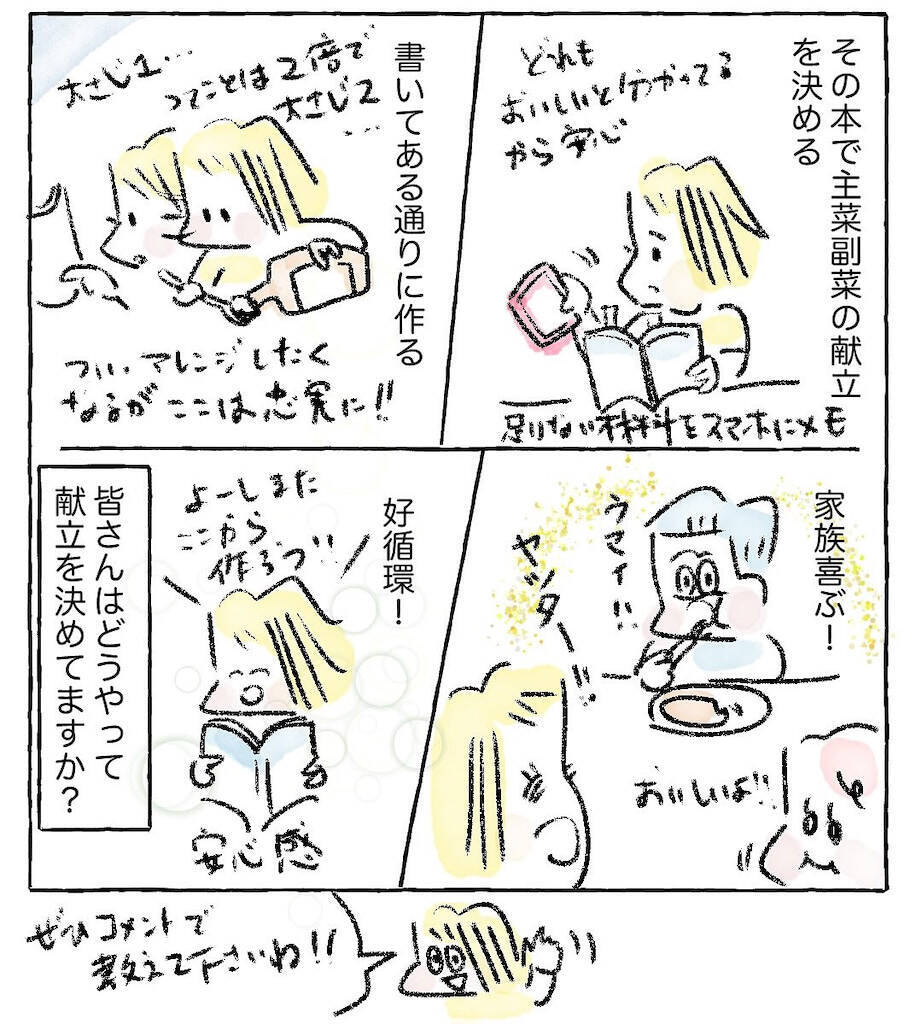 その本で主菜副菜の献立
を決める
どれも
おいしいと分かってる
から安心
足りない材料をスマホにメモ
書いてある通りに作る
大さじ1…
ってことは2倍で
大さじ2
…
ついアレンジしたく
なるがここは忠実に!!
家族喜ぶ！
ウマイ!!
ヤッター!!
おいしいよ!!
好循環！
よーしまた
ここから
作ろう!!
安心感
皆さんはどうやって
献立を決めてますか？
ぜひコメントで
教えて下さいね!!